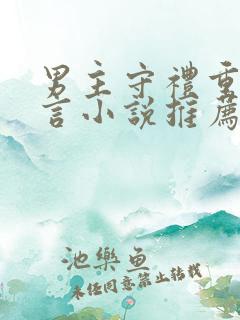 男主守禮重
言小說推薦
池樂魚
未经同意禁止转载